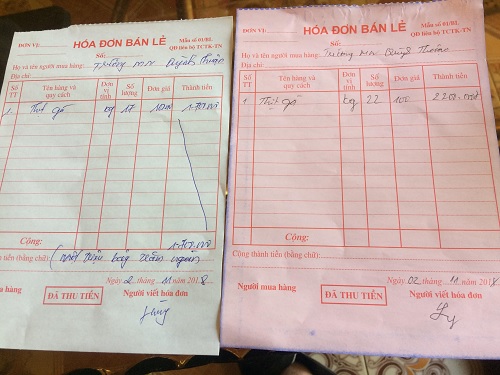 ĐƠN VỊ:
HÓA ĐƠN BÁN LẺ
Mẫu số 01/BL
QĐ liên bộ TCTK-TN
Số:
Họ và tên người mua hàng: Trường MN Quỳnh Thuận
Địa chỉ:
Số TT Tên hàng và quy cách Đơn vị tính Số lượng Đơn giá Thành tiền
1 Thịt gà kg 17 100 1.700.000
Cộng: 1.700.000
tiền (bằng chữ) (Một triệu bảy trăm nghìn
Ngày 2 tháng 11 năm 2018
mua hàng
ĐÃ THU TIỀN
Người viết hóa đơn
ĐƠN VỊ:
HÓA ĐƠN BÁN LẺ
Mẫu số 01/BL
QĐ liên bộ TCTK-TN
Số:
Họ và tên người mua hàng: Trường MN Quỳnh Thuận
Địa chỉ:
Số TT Tên hàng và quy cách Đơn vị tính Số lượng Đơn giá Thành tiền
1 Thịt gà kg 22 100
Cộng:
Cộng thành tiền (bằng chữ):
Ngày 02 tháng 11 năm 2018
Người mua hàng
ĐÃ THU TIỀN
Người viết hóa đơn